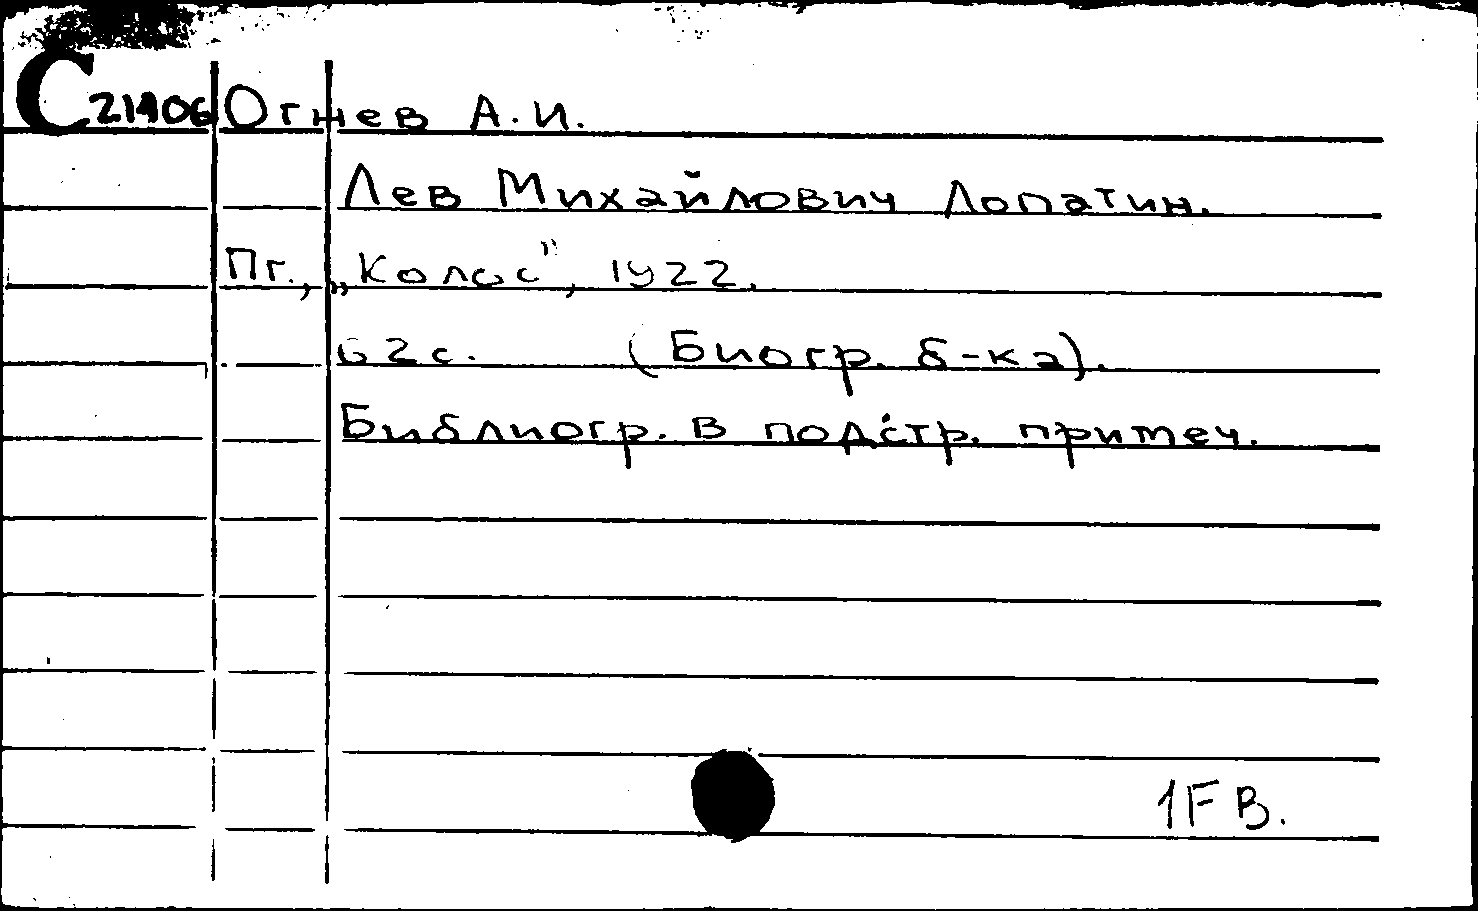 С 21406 Огнев А.И.
Лев Михайлович Лопатин.
Пг., „Колос”, 1922.
62с. (Биогр. б-ка).
Библиогр. в подстр. примеч.
1FB.